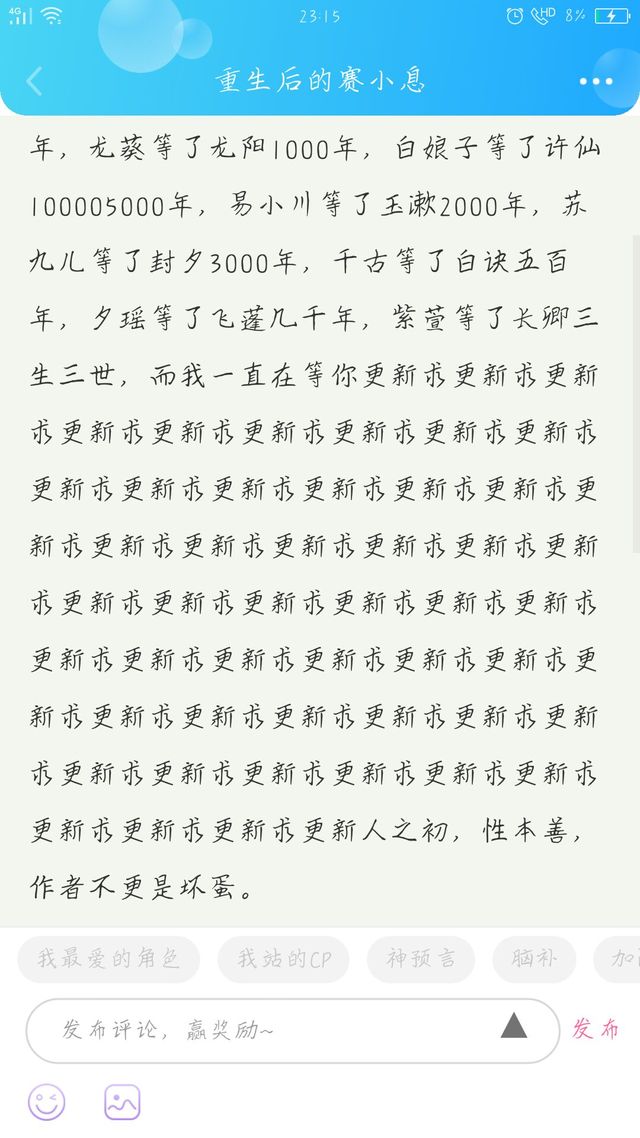 23:15
4G
HD
8%
重生后的赛小息
年，龙葵等了龙阳1000年，白娘子等了许仙
100005000年，易小川等了玉漱2000年，苏
九儿等了封夕3000年，千古等了白诀五百
年，夕瑶等了飞蓬几千年，紫萱等了长卿三
生三世，而我一直在等你更新求更新求更新
求更新求更新求更新求更新求更新求更新求
更新求更新求更新求更新求更新求更新求更
新求更新求更新求更新求更新求更新求更新
求更新求更新求更新求更新求更新求更新求
更新求更新求更新求更新求更新求更新求更
新求更新求更新求更新求更新求更新求更新
求更新求更新求更新求更新求更新求更新求
更新求更新求更新求更新人之初，性本善，
作者不更是坏蛋。
我最爱的角色 我站的CP 神预言 脑补 加
发布评论，赢奖励~ 发布